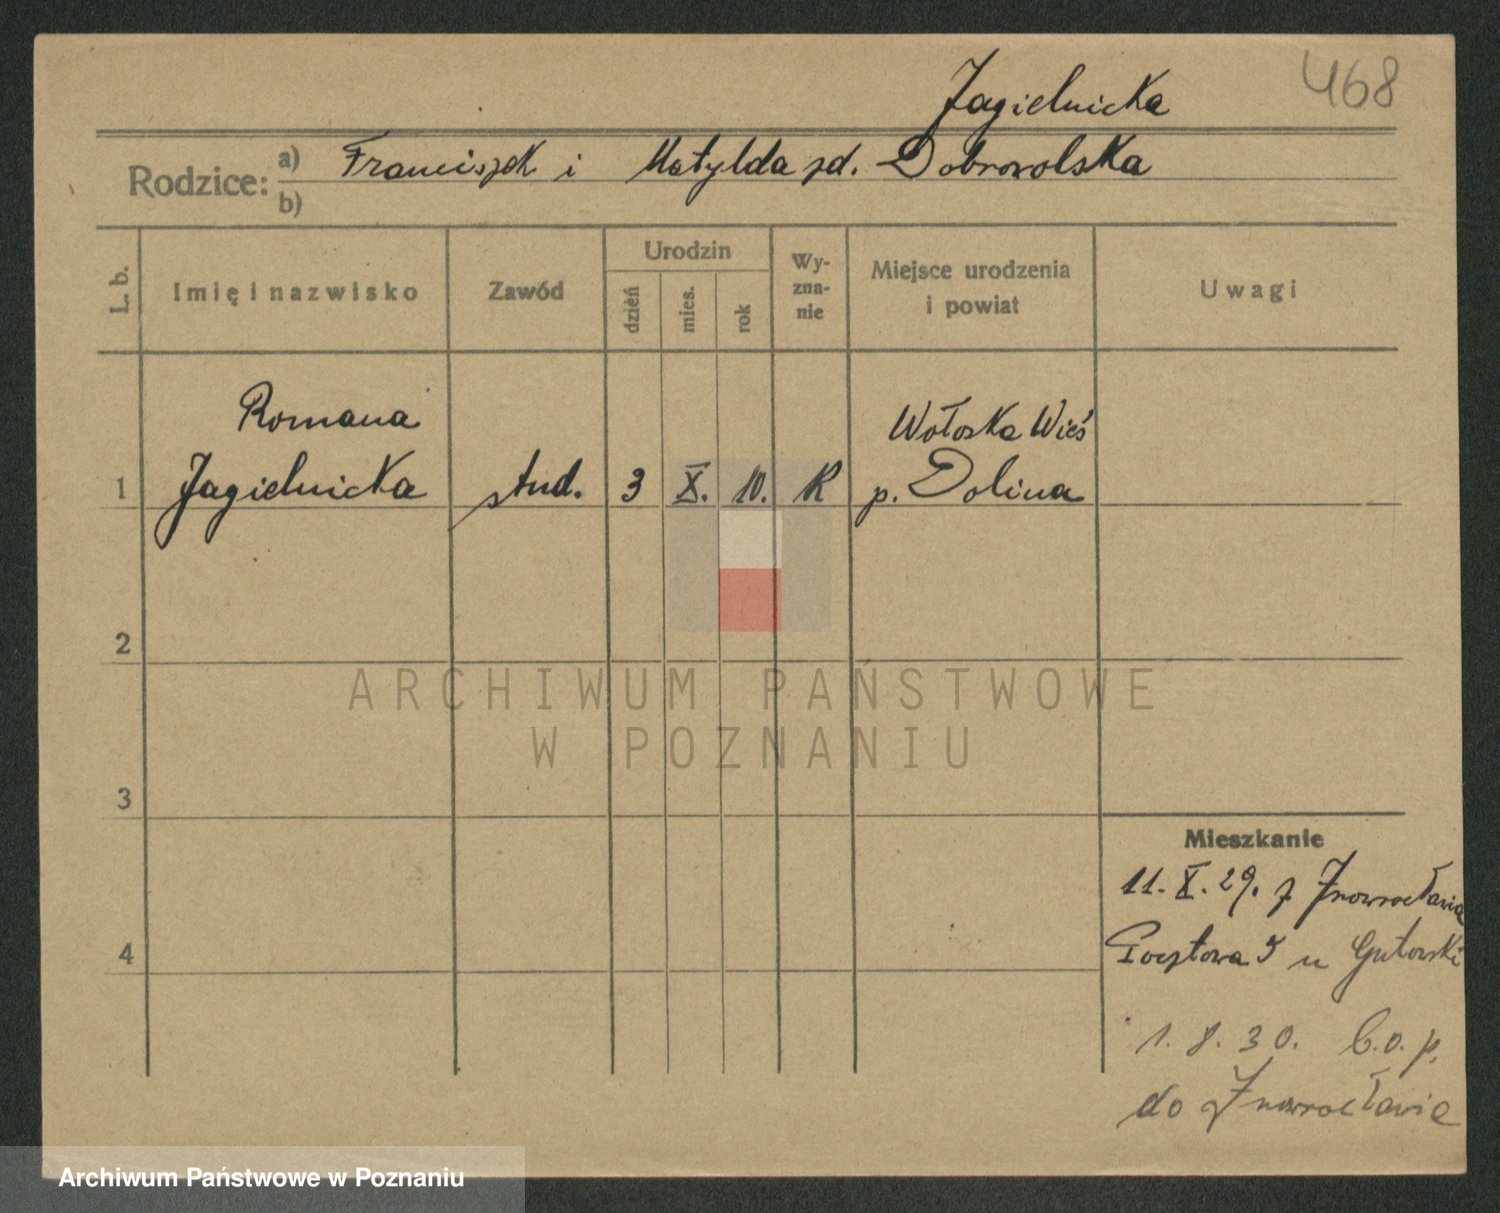 Jagielnicka
468
Rodzice:
a) Franciszek i Matylda zd. Dobrowolska
b)
L. b.
Imię i nazwisko
Zawód
Urodzin
dzień
mies.
rok
Wy-
zna-
nie
Miejsce urodzenia
i powiat
Uwagi
Romana
Wołoska Wieś
1 Jagielnicka stud. 3 X. 10. R p. Dolina
2
ARCHIWUM PAŃSTWOWE
W POZNANIU
3
Mieszkanie
11. X. 29. z Inowrocławia
Pocztowa 5 u Gutowski
4
1. 8. 30. b. o. p.
do Inowrocławia
Archiwum Państwowe w Poznaniu